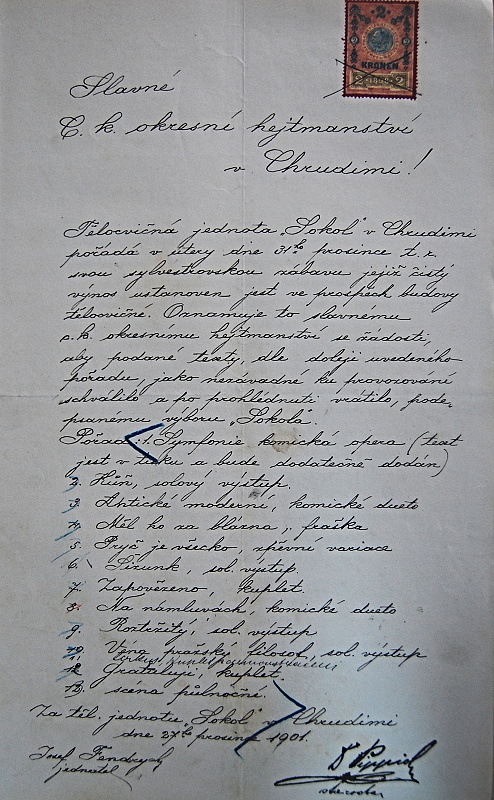 2
KRONEN
2 1898 2
Slavné
C. k. okresní hejtmanství
v Chrudimi!
Tělocvičná jednota „Sokol" v Chrudimi
pořádá v úterý dne 31ho prosince t. r.
svou sylvestrovskou zábavu jejíž čistý
výnos ustanoven jest ve prospěch budovy
tělocvičné. Oznamuje to slavnému
c. k. okresnímu hejtmanství se žádostí,
aby podané texty, dle doleji uvedeného
pořadu, jako nezávadné ku provozování
schválilo a po prohlédnutí vrátilo, pode-
psanému výboru „Sokola".
Pořad: 1. Symfonie komická opera (text
jest v tisku a bude dodatečně dodán)
2. Kůň, solový výstup.
3. Antické moderní, komické dueto
4. Měl ho za blázna, fraška
5. Pryč je všecko, zpěvní variace
6. Šizunk, sol. výstup.
7. Zapovězeno, kuplet.
8. Na námluvách, komické dueto
9. Roztržitý, sol. výstup
10. Věna pražský filosof, sol. výstup
11.
12. Gratulují, kuplet.
13. scéna půlnoční.
Za těl. jednotu „Sokol" v Chrudimi
dne 27ho prosince 1901.
Josef Fendrych
jednatel
Dr Pippich
starosta